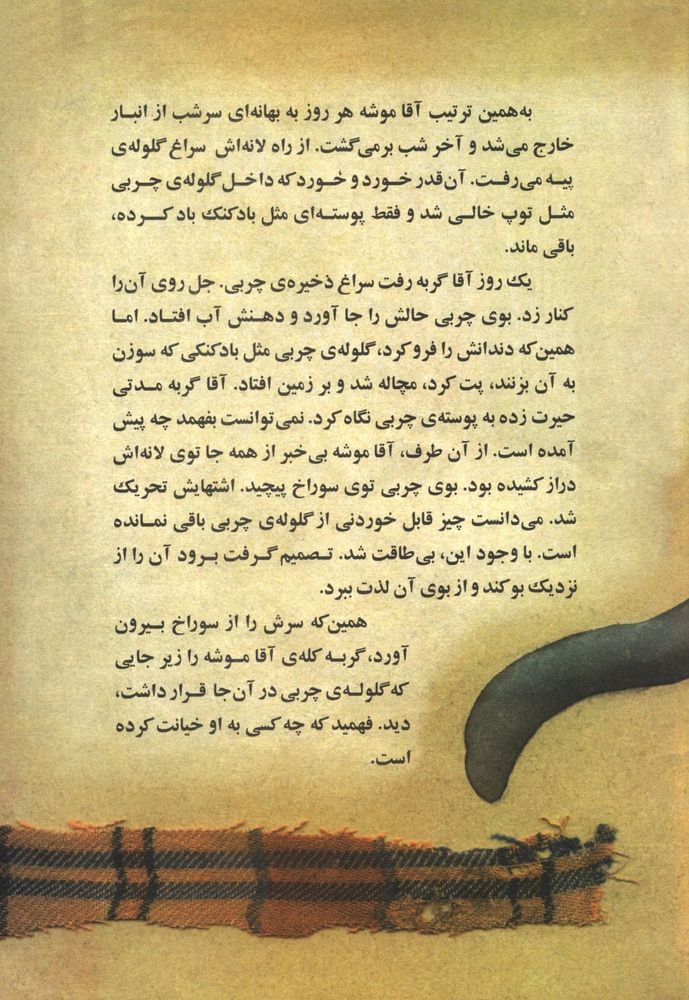 به‌همین ترتیب آقا موشه هر روز به بهانه‌ای سرشب از انبار
خارج می‌شد و آخر شب برمی‌گشت. از راه لانه‌اش سراغ گلوله‌ی
پیه می‌رفت. آن‌قدر خورد و خورد که داخل گلوله‌ی چربی
مثل توپ خالی شد و فقط پوسته‌ای مثل بادکنک باد کرده،
باقی ماند.
یک روز آقا گربه رفت سراغ ذخیره‌ی چربی. جل روی آن‌را
کنار زد. بوی چربی حالش را جا آورد و دهنش آب افتاد. اما
همین‌که دندانش را فرو کرد، گلوله‌ی چربی مثل بادکنکی که سوزن
به آن بزنند، پت کرد، مچاله شد و بر زمین افتاد. آقا گربه مدتی
حیرت زده به پوسته‌ی چربی نگاه کرد. نمی‌توانست بفهمد چه پیش
آمده است. از آن طرف، آقا موشه بی‌خبر از همه جا توی لانه‌اش
دراز کشیده بود. بوی چربی توی سوراخ پیچید. اشتهایش تحریک
شد. می‌دانست چیز قابل خوردنی از گلوله‌ی چربی باقی نمانده
است. با وجود این، بی‌طاقت شد. تصمیم گرفت برود آن را از
نزدیک بو کند و از بوی آن لذت ببرد.
همین‌که سرش را از سوراخ بیرون
آورد، گربه کله‌ی آقا موشه را زیر جایی
که گلوله‌ی چربی در آن‌جا قرار داشت،
دید. فهمید که چه کسی به او خیانت کرده
است.